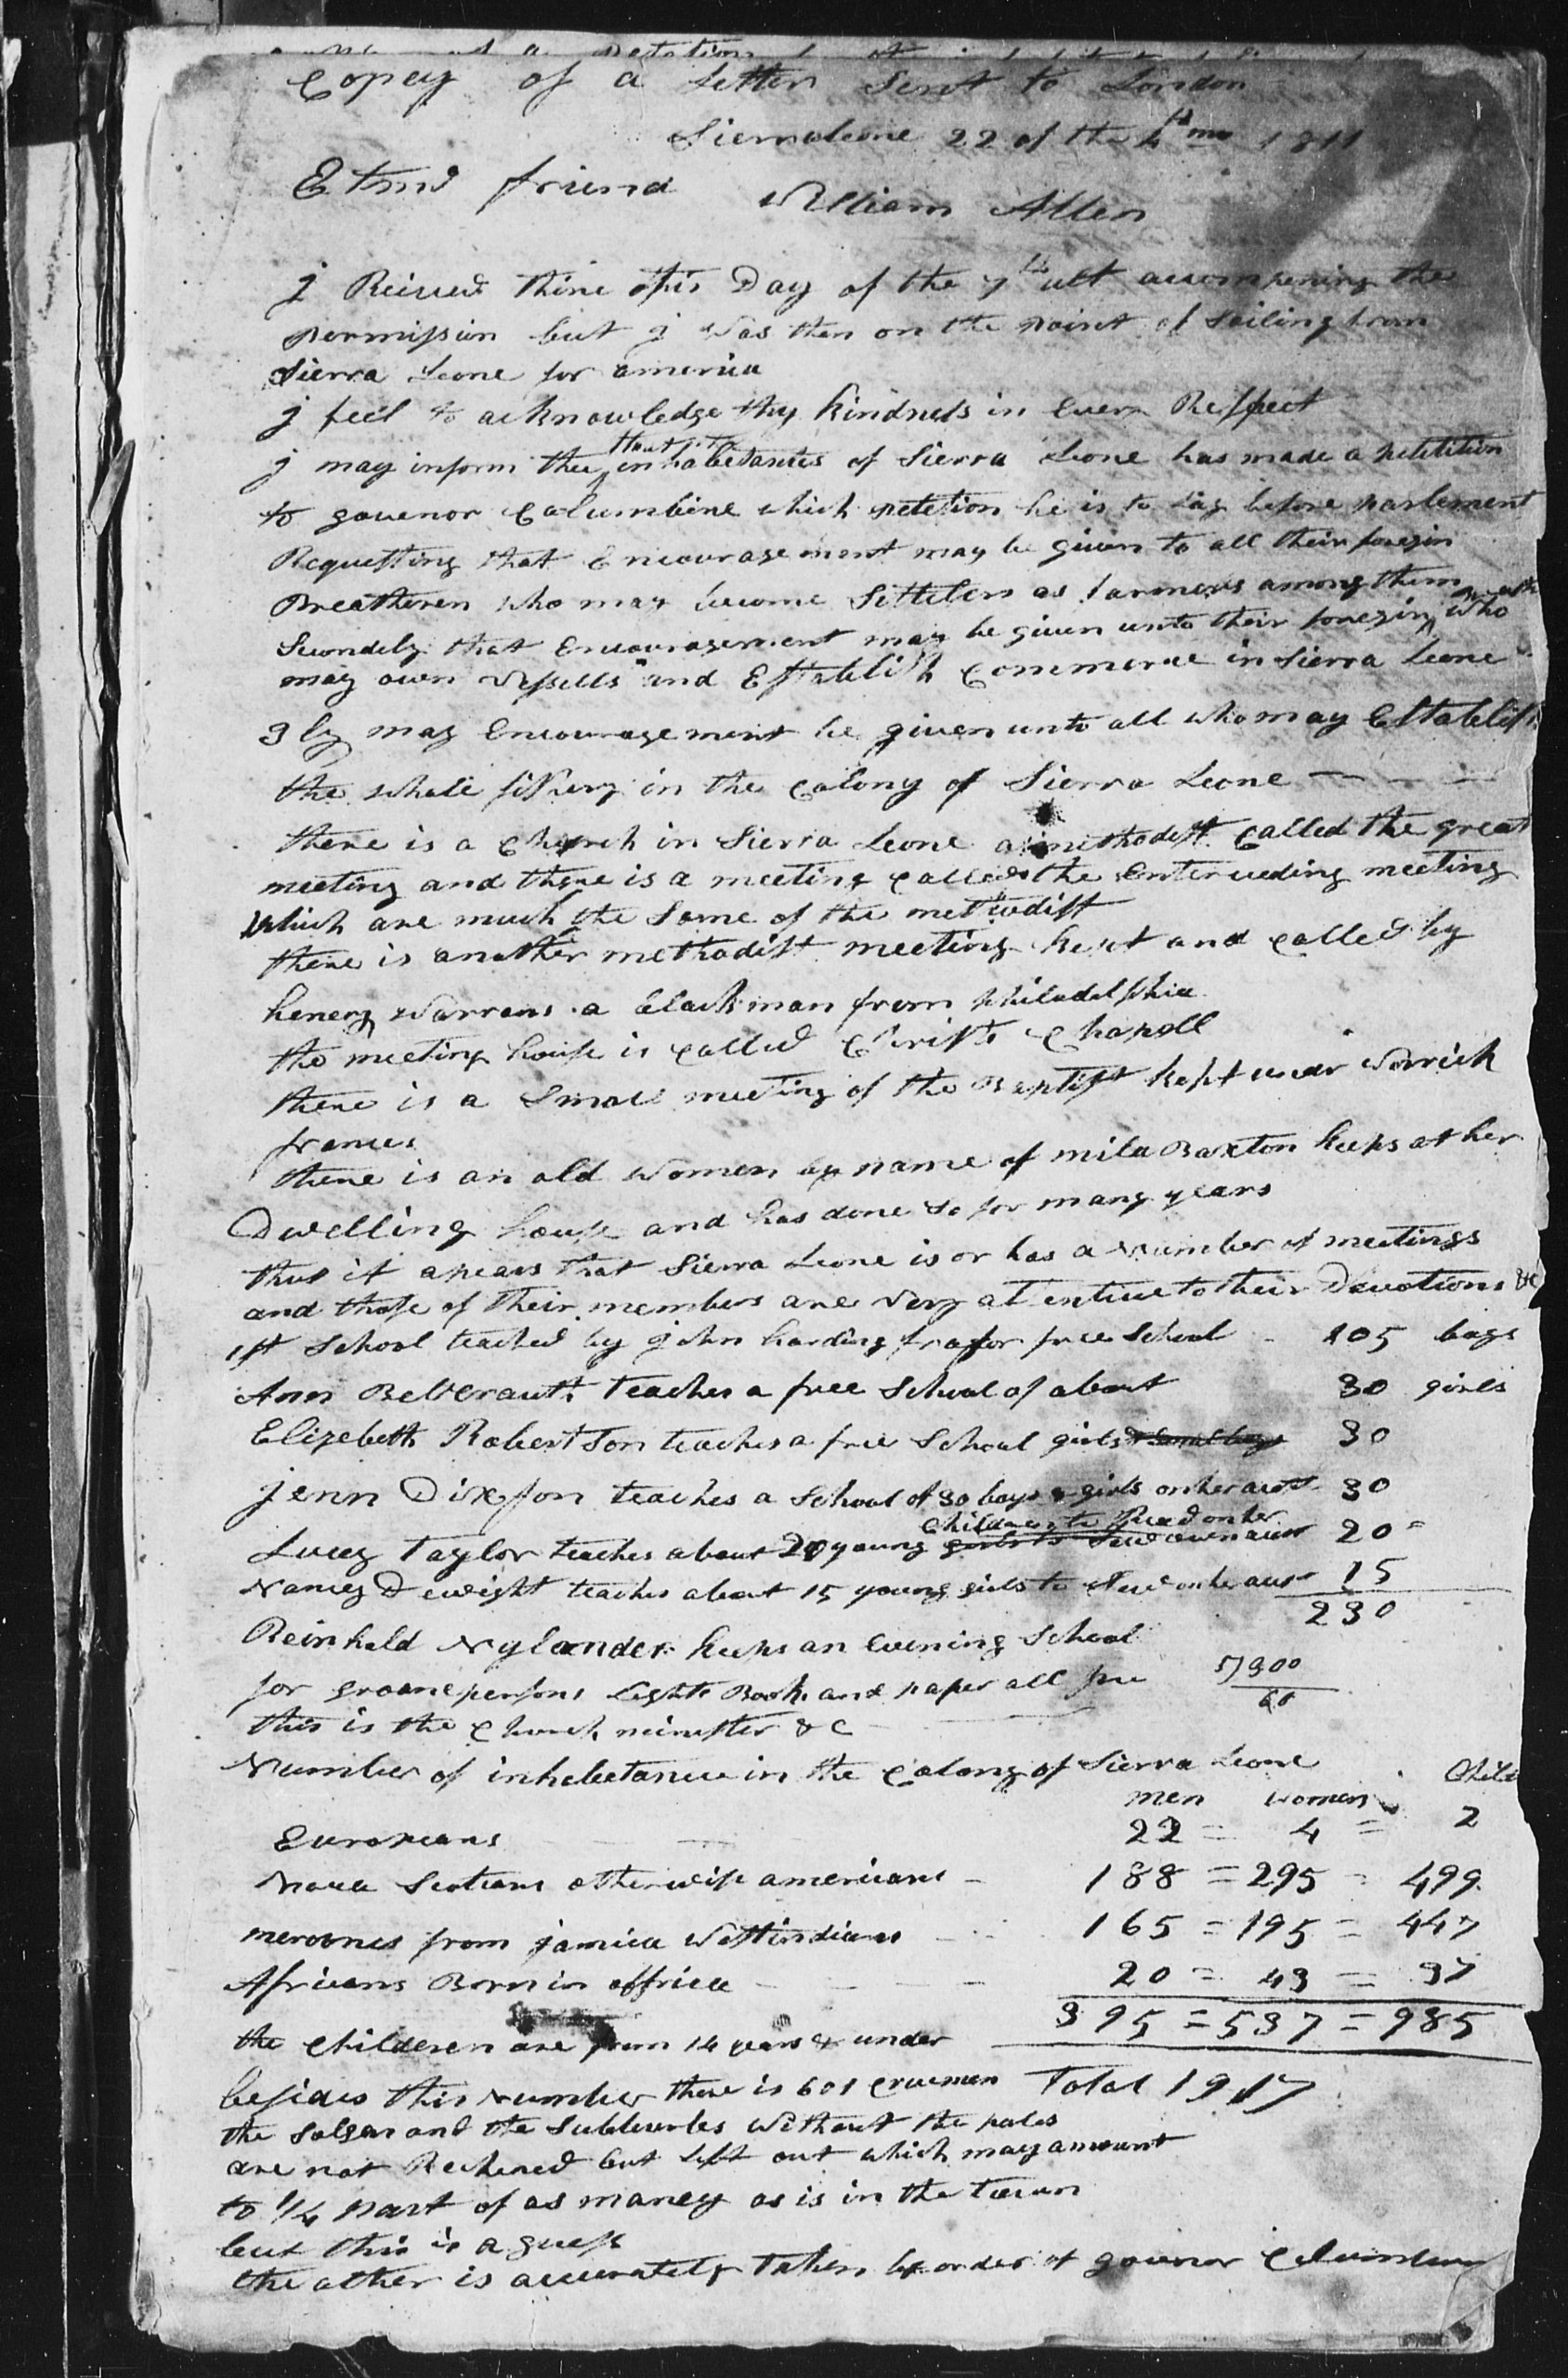 Copey of a Letter Sent to London
Sierraleone 22 of the 4th mo 1811
Etmd friend William Allen
j Reiceved thine this Day of the 7th ult accompening the
permission but j was then on the point of Sailing from
Sierra Leone for america
j feel to acknowledge thy kindness in Every Respect
j may inform thee that the inhabetantes of Sierra Leone has made a petetition
to govenor Columbine which petetion he is to Lay before parlement
Requesting that Encouragement may be given to all their foregin
Breatheren who may become Settelers as farmers among them
Secondely that Encouragement may be given unto their foregin who
may own vessells and Establish Commerce in Sierra Leone
3ly may Encouragement be given unto all who may Establish
the whale fishery in the Calony of Sierra Leone
there is a Church in Sierra Leone a methodist Called the great
meeting and there is a meeting Called the Enterceeding meeting
which are much the Same of the methodist
there is another methodist meeting kept and Called by
henery warrens a black man from philadelphia
the meeting house is Called Christs Chapell
there is a Small meeting of the Baptist kept under Worrick
frances
there is an old women by name of mila Baxton keeps at her
Dwelling house and has done so for many years
thus it apears that Sierra Leone is or has a Number of meetings
and those of their members are very atentive to their Devotions &c
1st School teached by john harding for free School 105 boys
Ann teaches a free School of about 30 girls
Elizebeth Robertson teaches a free School girls & Some boys 30
jenn Dixson teaches a School of 30 boys & girls on her acct 30
Lucey Taylor teaches about 20 young girls to Sew Children to Read on her own acct 20
Nancey Dewight teaches about 15 young girls to Sew on her acct 15
230
Reinhold Nylander keeps an Evening School
for groane persons Lights Books and paper all free
5)300
60
this is the Church minester &c
Number of inhebetance in the Calony of Sierra Leone
men women Child
Europeans 22 = 4 = 2
Nova Scotians otherwise americans 188 = 295 = 499
meroones from jamica Westindians 165 = 195 = 447
Africans Born in affrica 20 = 43 = 37
395 = 537 = 985
the Childeren are from 14 years & under
besides this Number there is 601 Crumen Total 1917
the and the Subburbes without the pales
are not Reckened but Left out which may amount
to 1/4 part of as maney as is in the town
but this is a guess
the other is accurately Taken by order of govenor